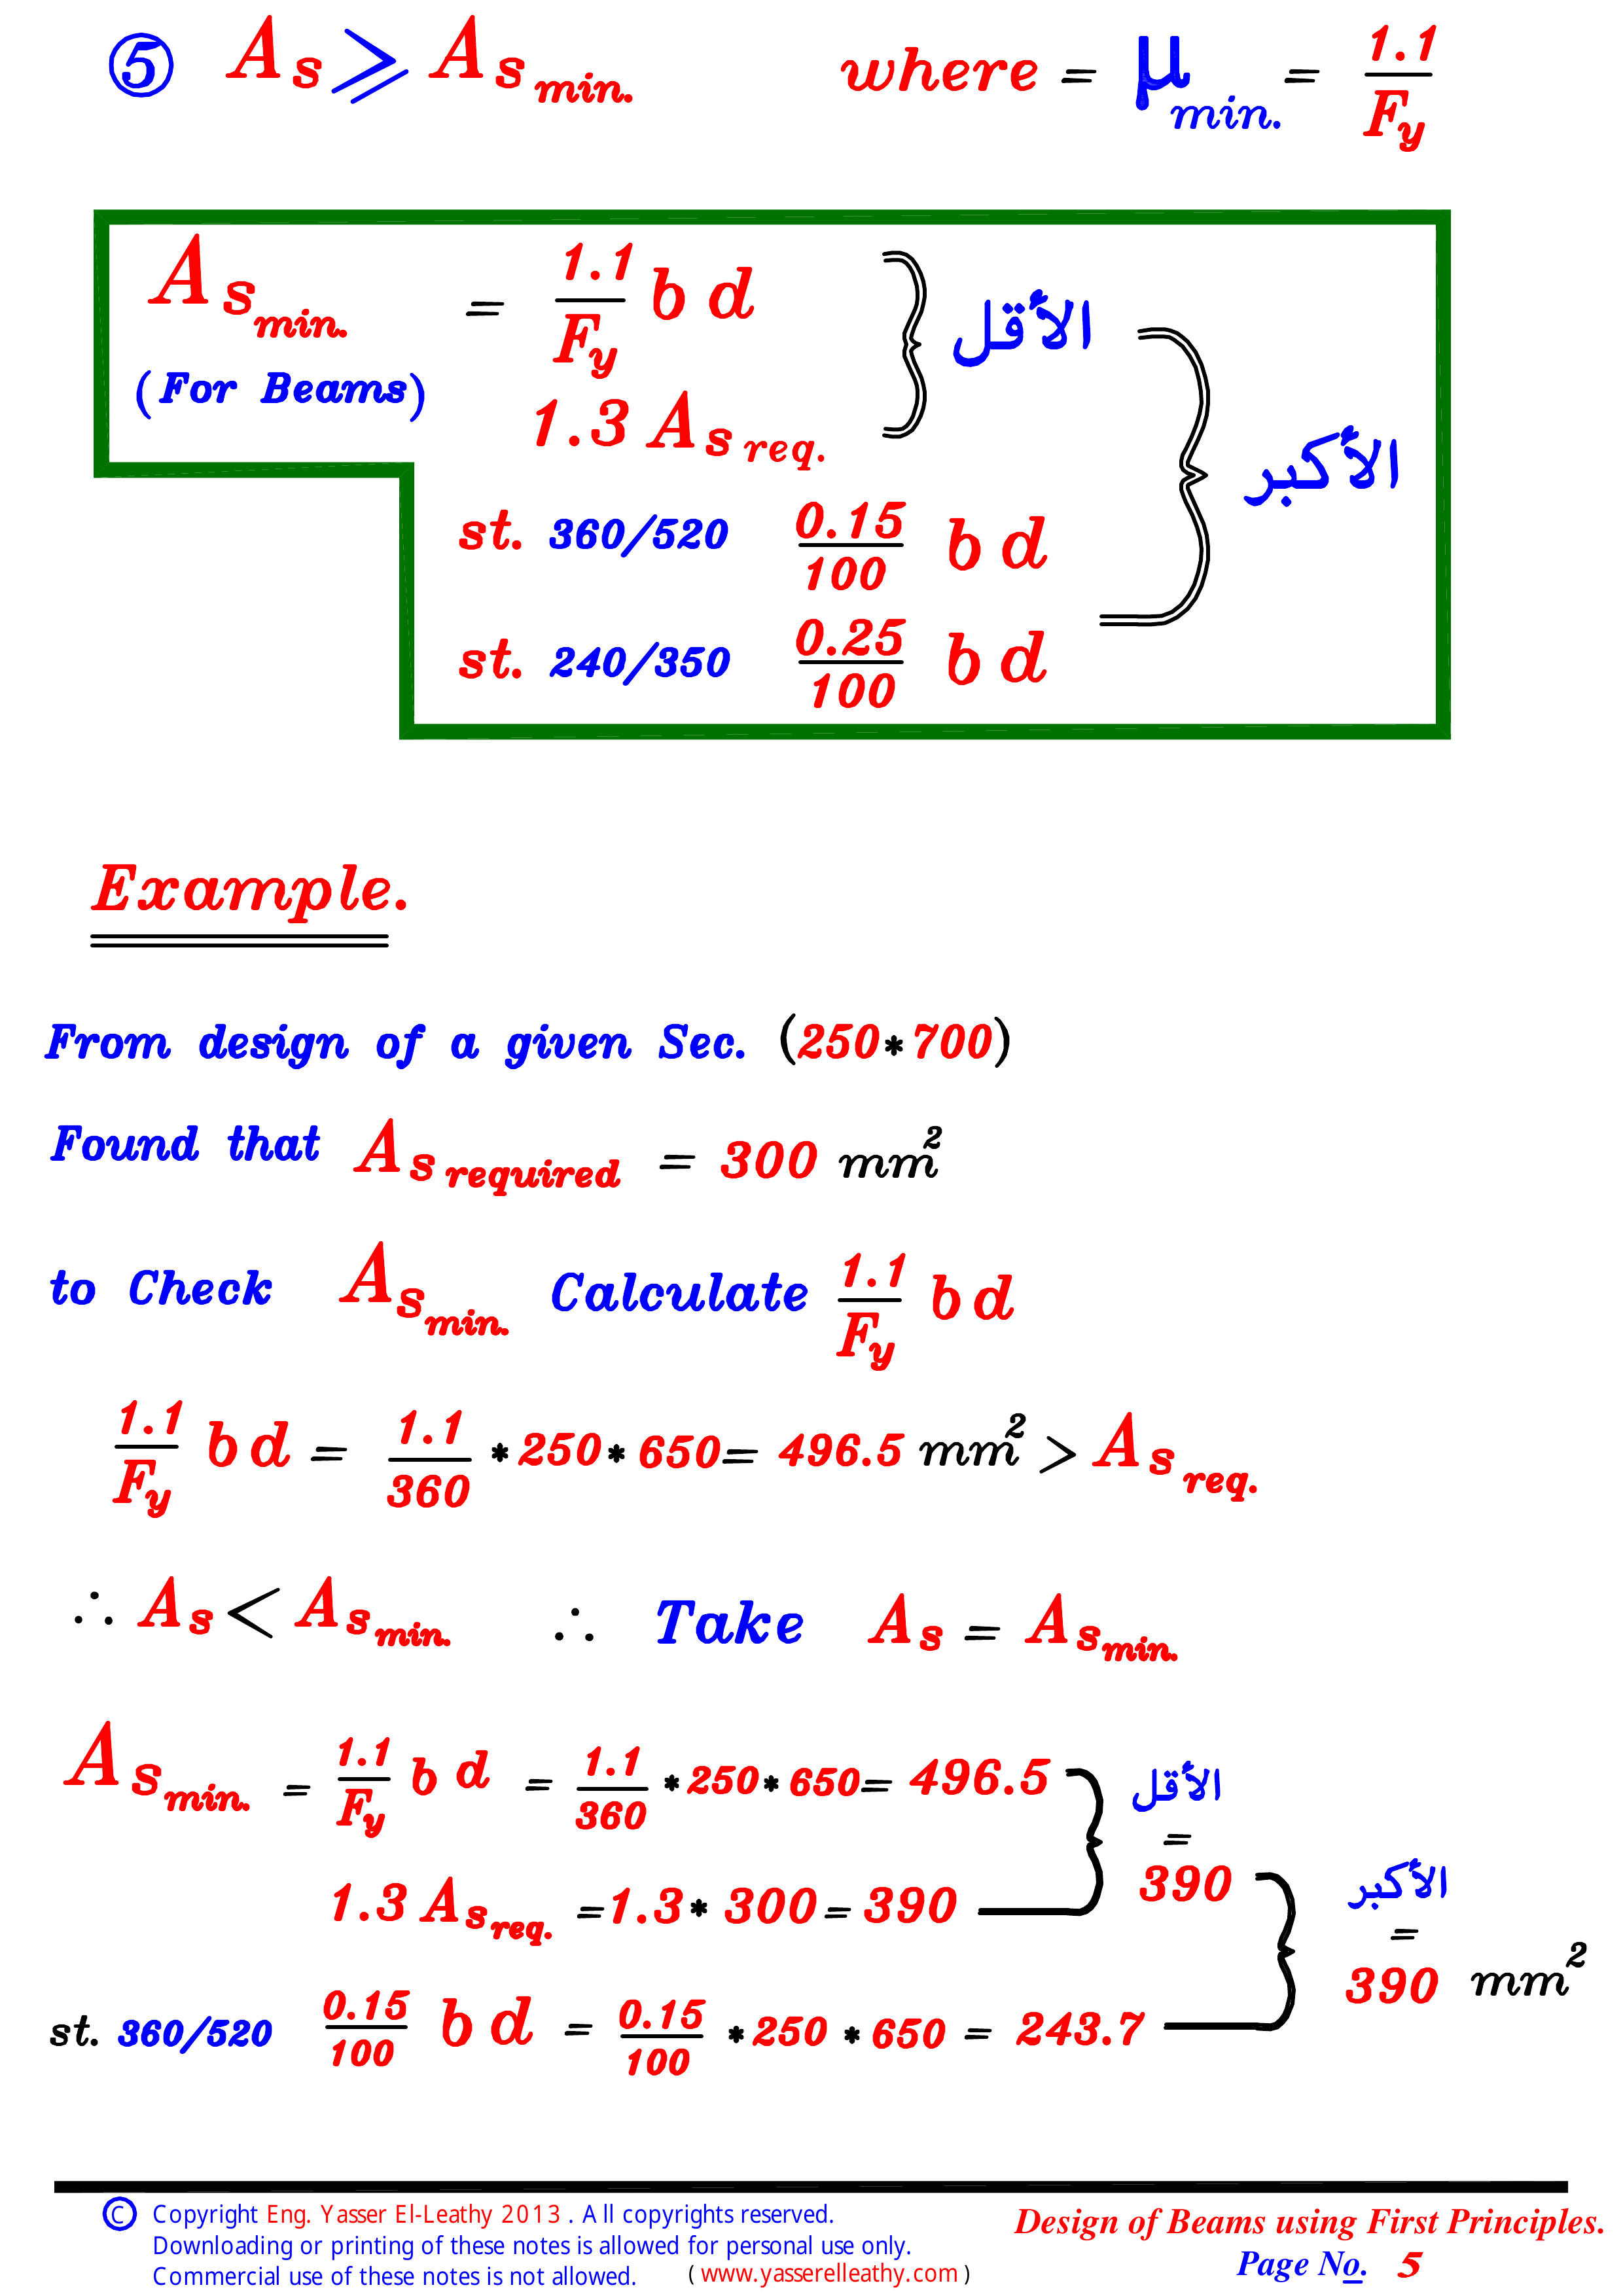 ⑤ As ⩾ As min. where = μ min. = 1.1 / Fy
As min. = 1.1 / Fy b d الأقل
(For Beams)
1.3 As req. الأكبر
st. 360/520 0.15 / 100 b d
st. 240/350 0.25 / 100 b d
Example.
From design of a given Sec. (250*700)
Found that As required = 300 mm²
to Check As min. Calculate 1.1 / Fy b d
1.1 / Fy b d = 1.1 / 360 * 250 * 650 = 496.5 mm² > As req.
∴ As < As min. ∴ Take As = As min.
As min. = 1.1 / Fy b d = 1.1 / 360 * 250 * 650 = 496.5 الأقل = 390
1.3 As req. = 1.3 * 300 = 390 الأكبر = 390 mm²
st. 360/520 0.15 / 100 b d = 0.15 / 100 * 250 * 650 = 243.7
© Copyright Eng. Yasser El-Leathy 2013 . All copyrights reserved.
Downloading or printing of these notes is allowed for personal use only.
Commercial use of these notes is not allowed. ( www.yasserelleathy.com )
Design of Beams using First Principles.
Page No. 5